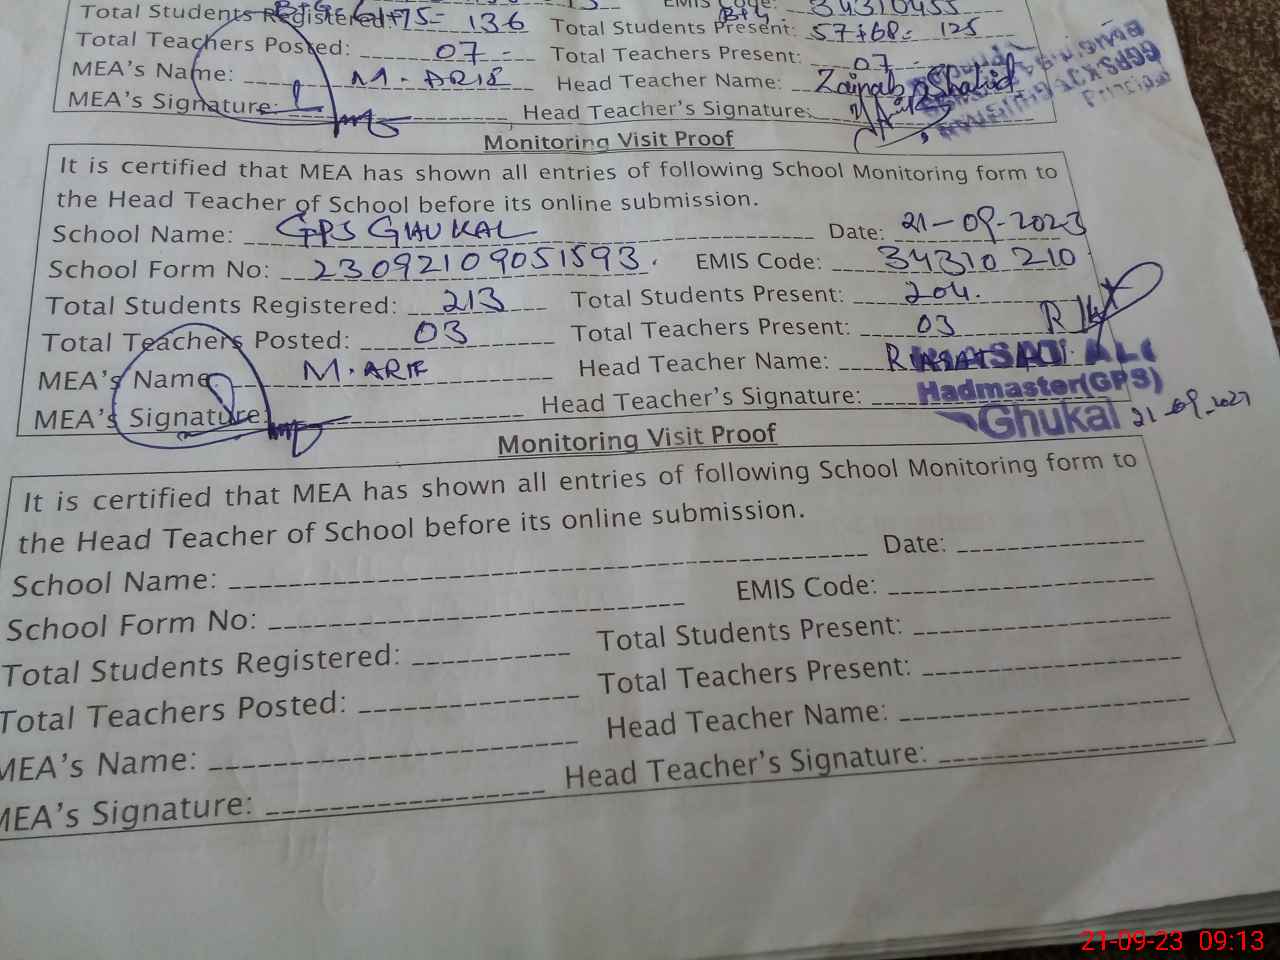 Total Students Registered: B+G= 61+75= 136 Total Students Present: B+G 57+68= 125
EMIS Code: 34310455
Total Teachers Posted: 07 Total Teachers Present: 07
MEA's Name: M. ARIF Head Teacher Name: Zainab Shahid
MEA's Signature: Head Teacher's Signature:
Monitoring Visit Proof
It is certified that MEA has shown all entries of following School Monitoring form to
the Head Teacher of School before its online submission.
School Name: GPS GHUKAL Date: 21-09-2023
School Form No: 23092109051593. EMIS Code: 34310 210
Total Students Registered: 213 Total Students Present: 204.
Total Teachers Posted: 03 Total Teachers Present: 03
MEA's Name: M. ARIF Head Teacher Name: RIASAT ALI
MEA's Signature: Head Teacher's Signature:
Hadmaster(GPS)
Ghukal 21-09-2023
Monitoring Visit Proof
It is certified that MEA has shown all entries of following School Monitoring form to
the Head Teacher of School before its online submission.
School Name: Date:
School Form No: EMIS Code:
Total Students Registered: Total Students Present:
Total Teachers Posted: Total Teachers Present:
MEA's Name: Head Teacher Name:
MEA's Signature: Head Teacher's Signature:
21-09-23 09:13